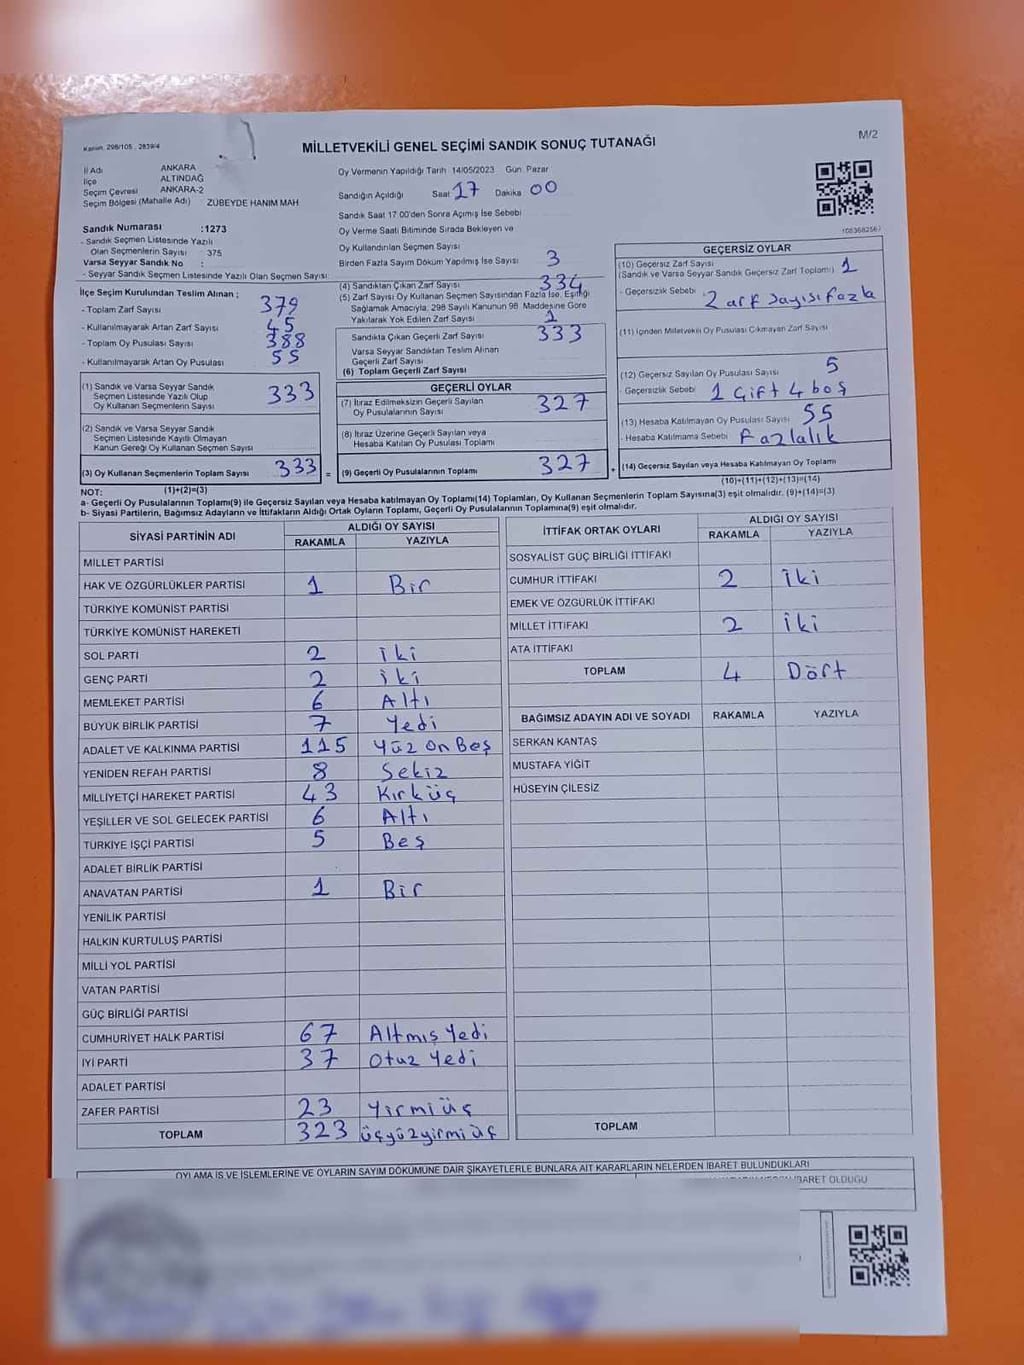 Kanun: 298/105, 2839/4
MİLLETVEKİLİ GENEL SEÇİMİ SANDIK SONUÇ TUTANAĞI
M/2
İl Adı ANKARA
İlçe ALTINDAĞ
Seçim Çevresi ANKARA-2
Seçim Bölgesi (Mahalle Adı) ZÜBEYDE HANIM MAH
Sandık Numarası :1273
- Sandık Seçmen Listesinde Yazılı
Olan Seçmenlerin Sayısı 375
Varsa Seyyar Sandık No :
- Seyyar Sandık Seçmen Listesinde Yazılı Olan Seçmen Sayısı:
Oy Vermenin Yapıldığı Tarih 14/05/2023 Gün: Pazar
Sandığın Açıldığı Saat 17 Dakika 00
Sandık Saat 17.00'den Sonra Açımış İse Sebebi
Oy Verme Saati Bitiminde Sırada Bekleyen ve
Oy Kullandırılan Seçmen Sayısı
Birden Fazla Sayım Döküm Yapılmış İse Sayısı 3
İlçe Seçim Kurulundan Teslim Alınan ;
- Toplam Zarf Sayısı 379
- Kullanılmayarak Artan Zarf Sayısı 45
- Toplam Oy Pusulası Sayısı 388
- Kullanılmayarak Artan Oy Pusulası 55
(1) Sandık ve Varsa Seyyar Sandık
Seçmen Listesinde Yazılı Olup
Oy Kullanan Seçmenlerin Sayısı 333
(2) Sandık ve Varsa Seyyar Sandık
Seçmen Listesinde Kayıtlı Olmayan
Kanun Gereği Oy Kullanan Seçmen Sayısı
(3) Oy Kullanan Seçmenlerin Toplam Sayısı 333 =
(1)+(2)=(3)
(4) Sandıktan Çıkan Zarf Sayısı 334
(5) Zarf Sayısı Oy Kullanan Seçmen Sayısından Fazla İse, Eşitliği
Sağlamak Amacıyla, 298 Sayılı Kanunun 98. Maddesine Göre
Yakılarak Yok Edilen Zarf Sayısı 1
Sandıkta Çıkan Geçerli Zarf Sayısı 333
Varsa Seyyar Sandıktan Teslim Alınan
Geçerli Zarf Sayısı
(6) Toplam Geçerli Zarf Sayısı
GEÇERLİ OYLAR
(7) İtiraz Edilmeksizin Geçerli Sayılan
Oy Pusulalarının Sayısı 327
(8) İtiraz Üzerine Geçerli Sayılan veya
Hesaba Katılan Oy Pusulası Toplamı
(9) Geçerli Oy Pusulalarının Toplamı 327 +
GEÇERSİZ OYLAR
(10) Geçersiz Zarf Sayısı
(Sandık ve Varsa Seyyar Sandık Geçersiz Zarf Toplamı) 1
- Geçersizlik Sebebi: Zarf sayısı fazla
(11) İçinden Milletvekili Oy Pusulası Çıkmayan Zarf Sayısı
(12) Geçersiz Sayılan Oy Pusulası Sayısı 5
- Geçersizlik Sebebi 1 Çift 4 boş
(13) Hesaba Katılmayan Oy Pusulası Sayısı 55
- Hesaba Katılmama Sebebi: Fazlalık
(14) Geçersiz Sayılan veya Hesaba Katılmayan Oy Toplamı
(10)+(11)+(12)+(13)=(14)
NOT:
a- Geçerli Oy Pusulalarının Toplamı(9) ile Geçersiz Sayılan veya Hesaba katılmayan Oy Toplamı(14) Toplamları, Oy Kullanan Seçmenlerin Toplam Sayısına(3) eşit olmalıdır. (9)+(14)=(3)
b- Siyasi Partilerin, Bağımsız Adayların ve İttifakların Aldığı Ortak Oyların Toplamı, Geçerli Oy Pusulalarının Toplamına(9) eşit olmalıdır.
SİYASİ PARTİNİN ADI ALDIĞI OY SAYISI
RAKAMLA YAZIYLA
MİLLET PARTİSİ
HAK VE ÖZGÜRLÜKLER PARTİSİ 1 Bir
TÜRKİYE KOMÜNİST PARTİSİ
TÜRKİYE KOMÜNİST HAREKETİ
SOL PARTİ 2 iki
GENÇ PARTİ 2 iki
MEMLEKET PARTİSİ 6 Altı
BÜYÜK BİRLİK PARTİSİ 7 Yedi
ADALET VE KALKINMA PARTİSİ 115 Yüz On Beş
YENİDEN REFAH PARTİSİ 8 Sekiz
MİLLİYETÇİ HAREKET PARTİSİ 43 Kırküç
YEŞİLLER VE SOL GELECEK PARTİSİ 6 Altı
TÜRKİYE İŞÇİ PARTİSİ 5 Beş
ADALET BİRLİK PARTİSİ
ANAVATAN PARTİSİ 1 Bir
YENİLİK PARTİSİ
HALKIN KURTULUŞ PARTİSİ
MİLLİ YOL PARTİSİ
VATAN PARTİSİ
GÜÇ BİRLİĞİ PARTİSİ
CUMHURİYET HALK PARTİSİ 67 Altmış Yedi
İYİ PARTİ 37 Otuz Yedi
ADALET PARTİSİ
ZAFER PARTİSİ 23 Yirmi üç
TOPLAM 323 üçyüzyirmi üç
İTTİFAK ORTAK OYLARI ALDIĞI OY SAYISI
RAKAMLA YAZIYLA
SOSYALİST GÜÇ BİRLİĞİ İTTİFAKI
CUMHUR İTTİFAKI 2 iki
EMEK VE ÖZGÜRLÜK İTTİFAKI
MİLLET İTTİFAKI 2 iki
ATA İTTİFAKI
TOPLAM 4 Dört
BAĞIMSIZ ADAYIN ADI VE SOYADI RAKAMLA YAZIYLA
SERKAN KANTAŞ
MUSTAFA YİĞİT
HÜSEYİN ÇİLESİZ
TOPLAM
OYLAMA İŞ VE İŞLEMLERİNE VE OYLARIN SAYIM DÖKÜMÜNE DAİR ŞİKAYETLERLE BUNLARA AİT KARARLARIN NELERDEN İBARET BULUNDUKLARI
İBARET OLDUĞU